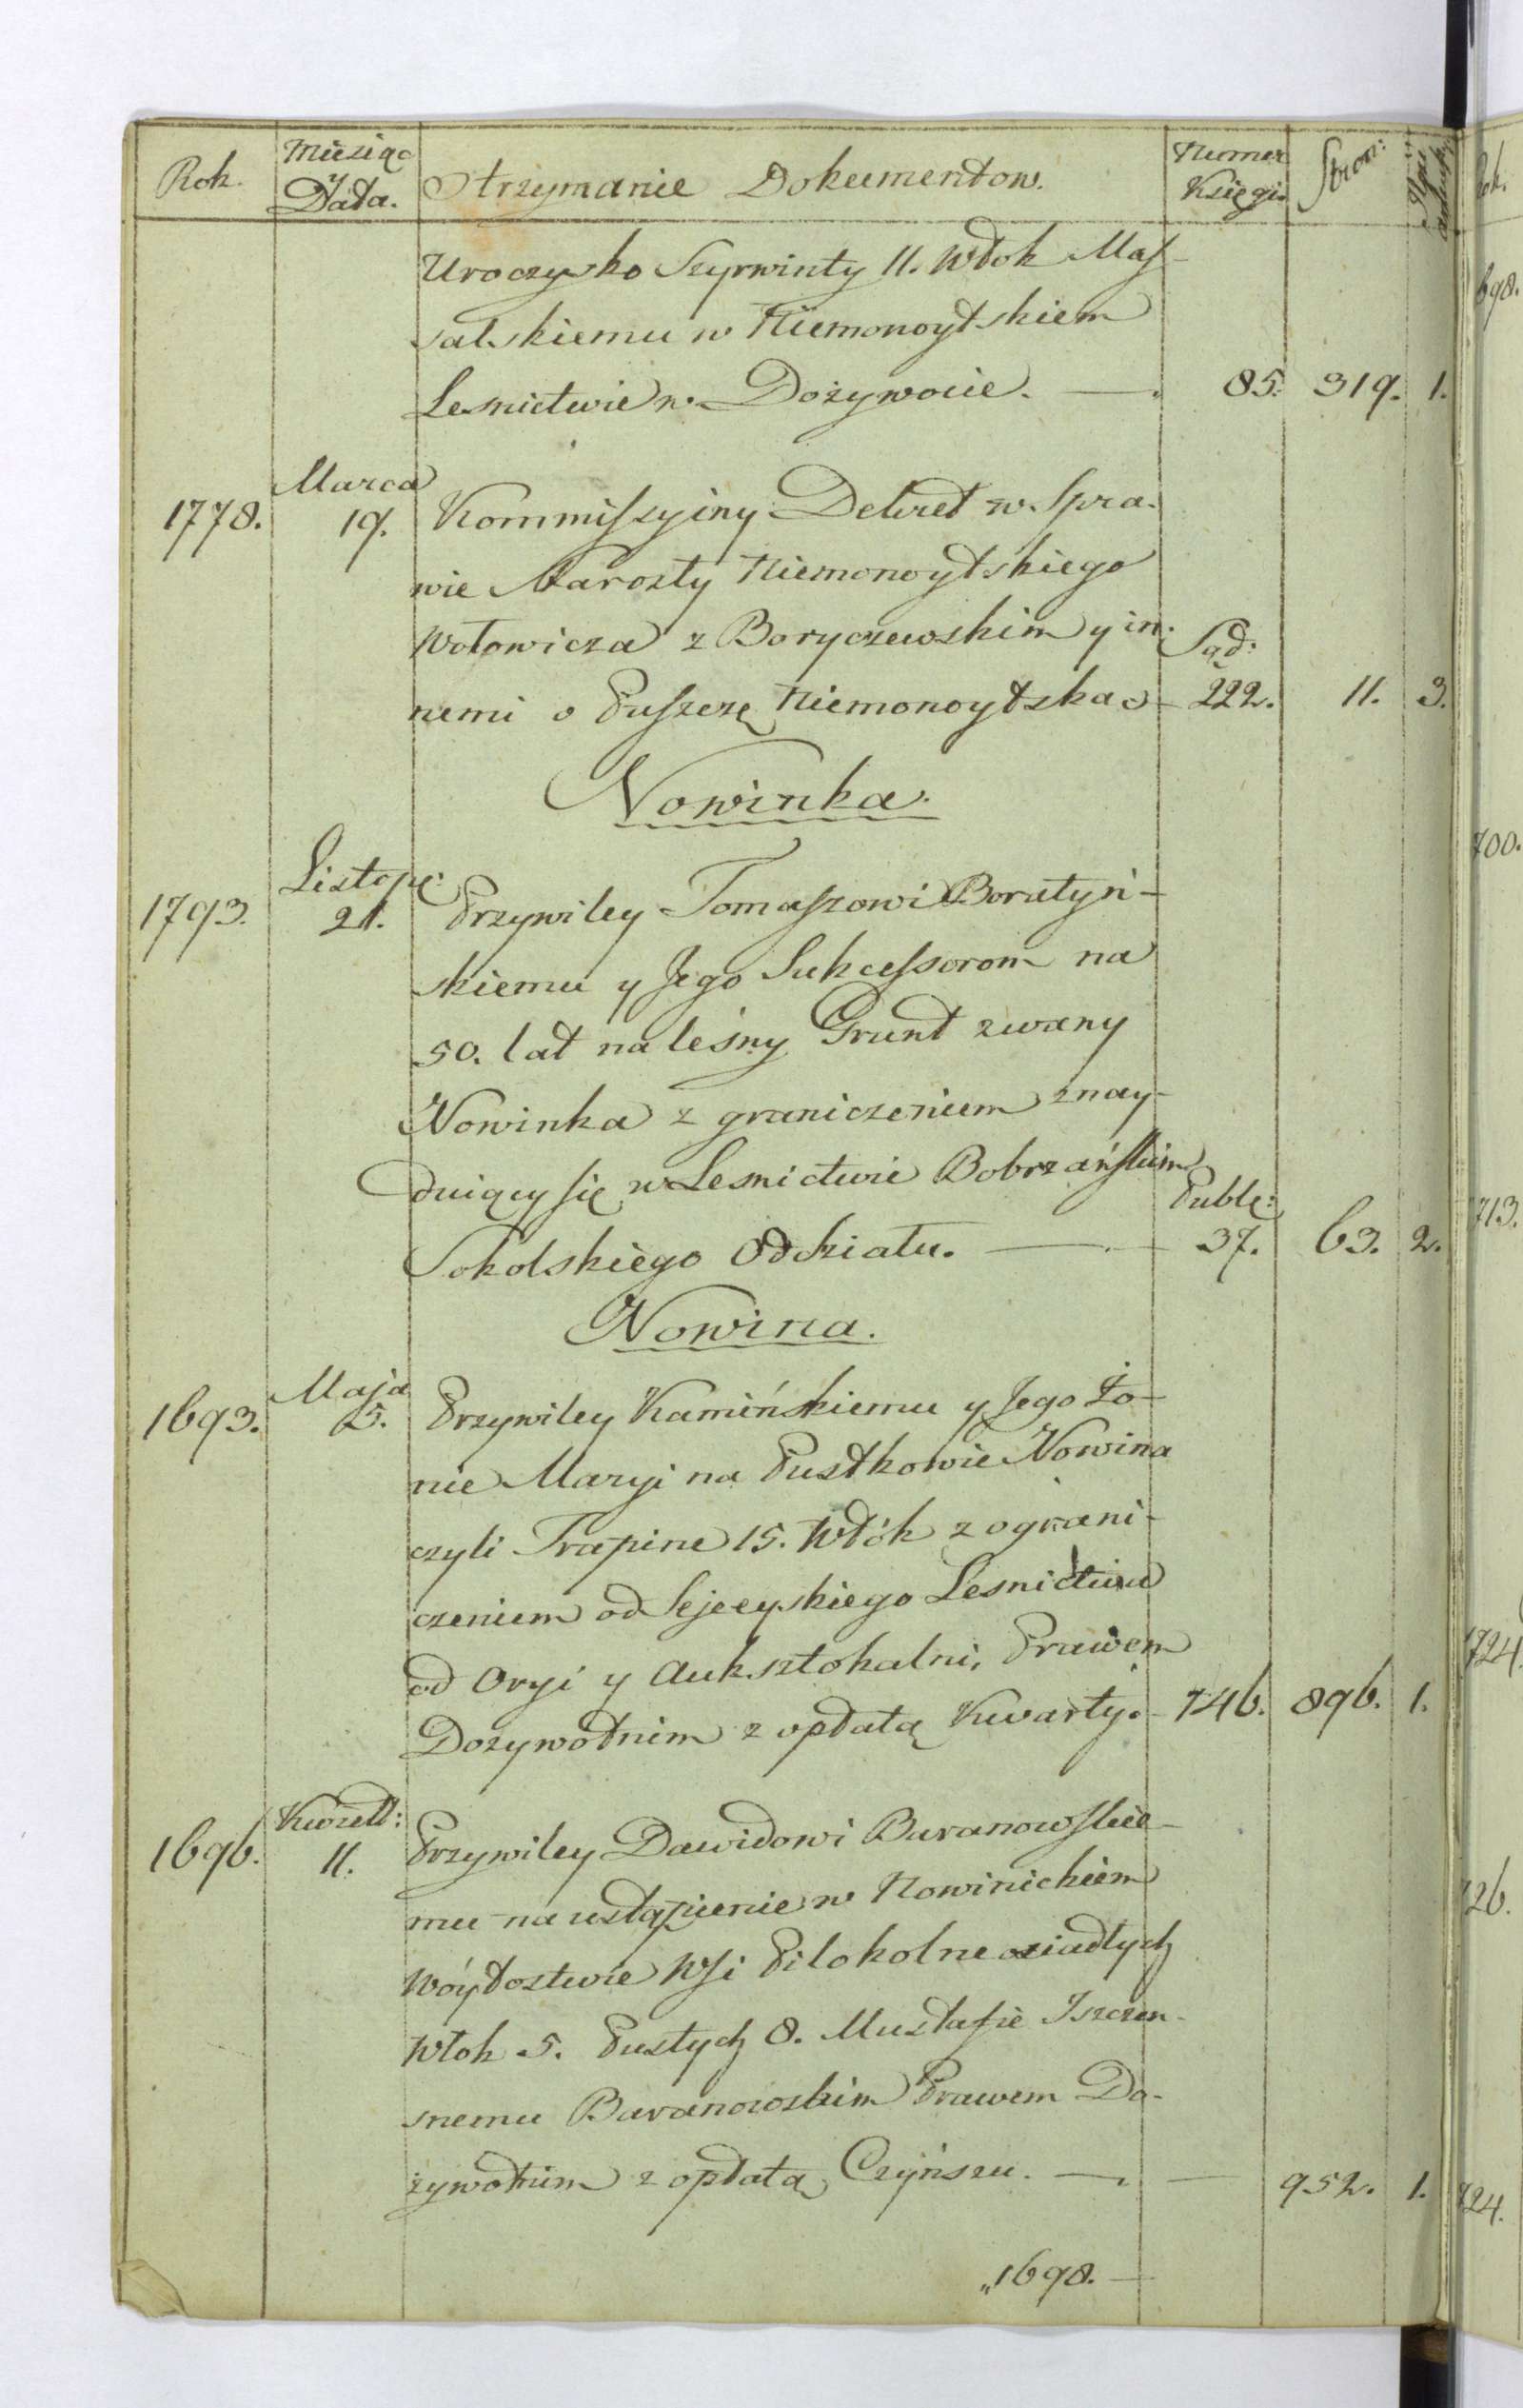 Rok. Miesiąc y Data. Otrzymanie Dokumentow. Numer Księgi. Stron:
Uroczysko Szyrwinty 11. Włok Mas-
salskiemu w Niemonoytskiem
Lesnictwie w Dożywocie. — 85. 319. 1.
1778. Marca 19. Kommissyiny Dekret w Spra-
wie Starosty Niemonoytskiego
Wołowicza z Boryczewskim y in-
nemi o Puszczę Niemonoytską — Sąd: 222. 11. 3.
Nowinka.
1793. Listop: 21. Przywiley Tomaszowi Boratyń-
skiemu y Jego Sukcessorom na
50. lat na leśny Grunt zwany
Nowinka z graniczeniem znay-
duiący się w Lesnictwie Bobrzańskim
Sokolskiego Oddziału. — Publę: 37. 63. 2.
Nowina.
1693. Maja 25. Przywiley Kamińskiemu y Jego Żo-
nie Maryi na Pustkowie Nowina
czyli Trapine 15. Włók z ograni-
czeniem od Sejeeyskiego Lesnictwa
od Oryi yAuksztokalni, Prawem
Dozywotnim z opłatą Kwarty. — 146. 896. 1.
1696. Kwiett: 11. Przywiley Dawidowi Baranowskie-
mu na ustąpienie w Nowinickiem
Wóytostwie Wsi Pilokolne osiadłych
Włok 5. Pustych 8. Mustafie Jszczen-
snemu Baranowskim Prawem Do-
żywotnim z opłatą Czyńszu. — 952. 1.
„1698. —
698.
700.
713.
1724.
726.
724.